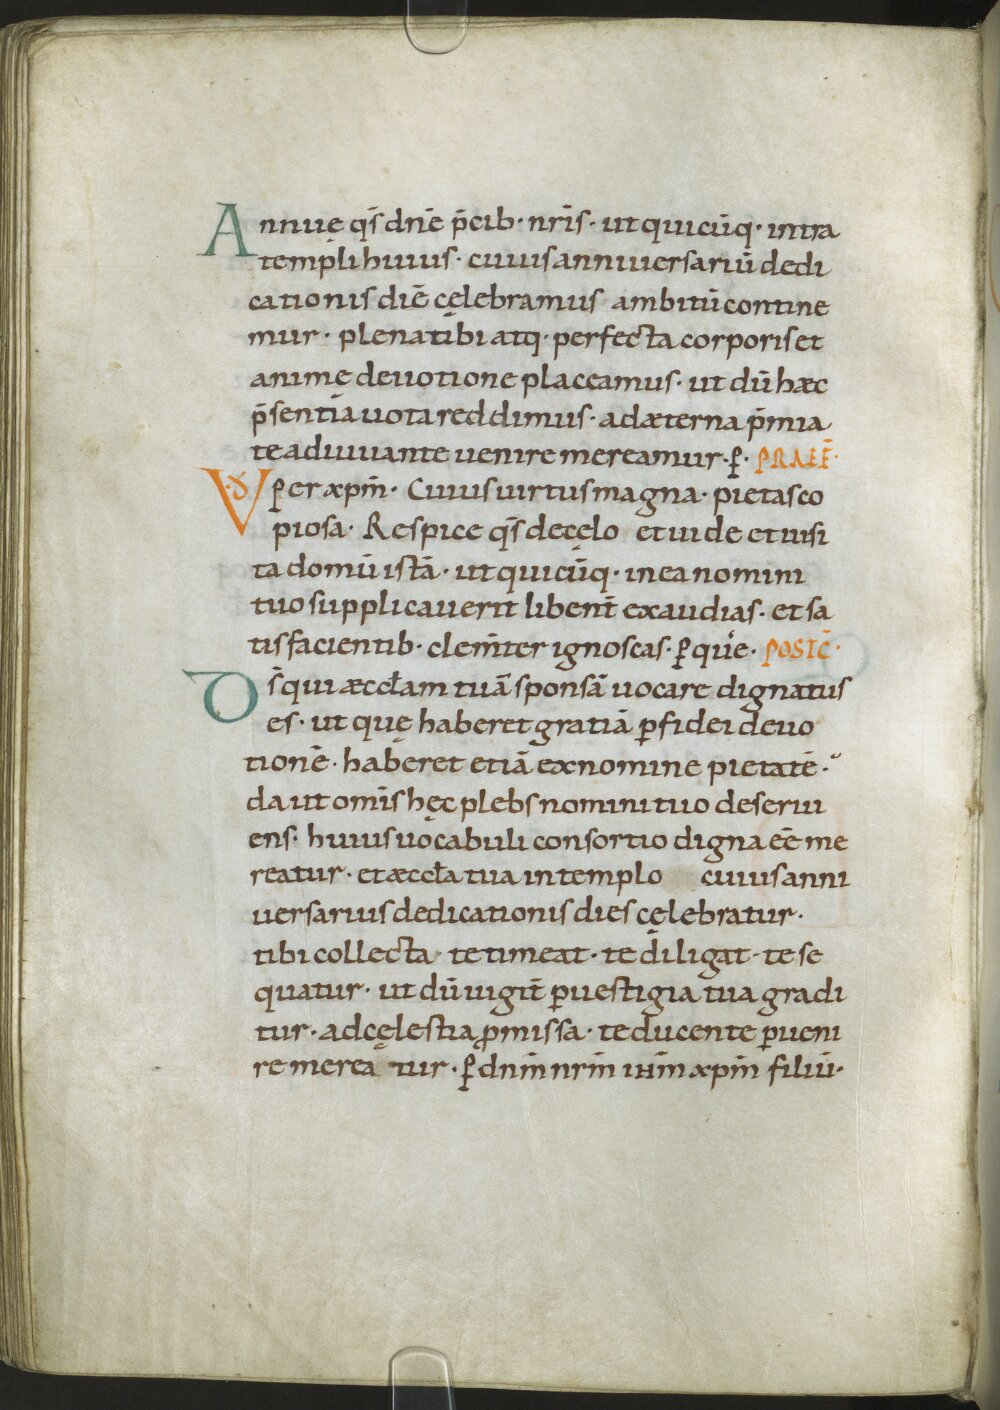 Annuę q̄s dn̄e p̄cib· nr̄is· ut quicūq· intra
templi huius· cuius anniuersariū dedi
cationis diē cęlebramus ambitū contine
mur· plena tibi atq· perfecta corporis et
animę deuotione placeamus· ut dū hæc
p̄sentia uota reddimus· ad æterna p̄mia
te adiuuante uenire mereamur· ꝑ· PRAEF̄·
VD ꝑ er xp̄m̄· Cuius uirtus magna· pietas co
piosa· Respice q̄s de cęlo et uide et uisi
ta domū istā· ut quicūq· in ea nomini
tuo supplicauerit liben̄t exaudias· et sa
tisfacientib· clem̄ter ignoscas· ꝑ quē· POSTC̄·
Ds̄ qui æccƚam tuā sponsā uocare dignatus
es· ut quę haberet gratiā ꝑ fidei deuo
tionē· haberet etiā ex nomine pietatē·
da ut omīs hęc plebs nomini tuo deserui
ens· huius uocabuli consortio digna eē me
reatur· et æccƚa tua in templo cuius anni
uersarius dedicationis dies cęlebratur·
tibi collecta· te timeat· te diligat· te se
quatur· ut dū iugit̄ ꝑ uestigia tua gradi
tur· ad cęlestia ꝓmissa· te ducente ꝑueni
re merea tur· ꝑ dnm̄ nrm̄ ihm̄ xpm̄ filiū·